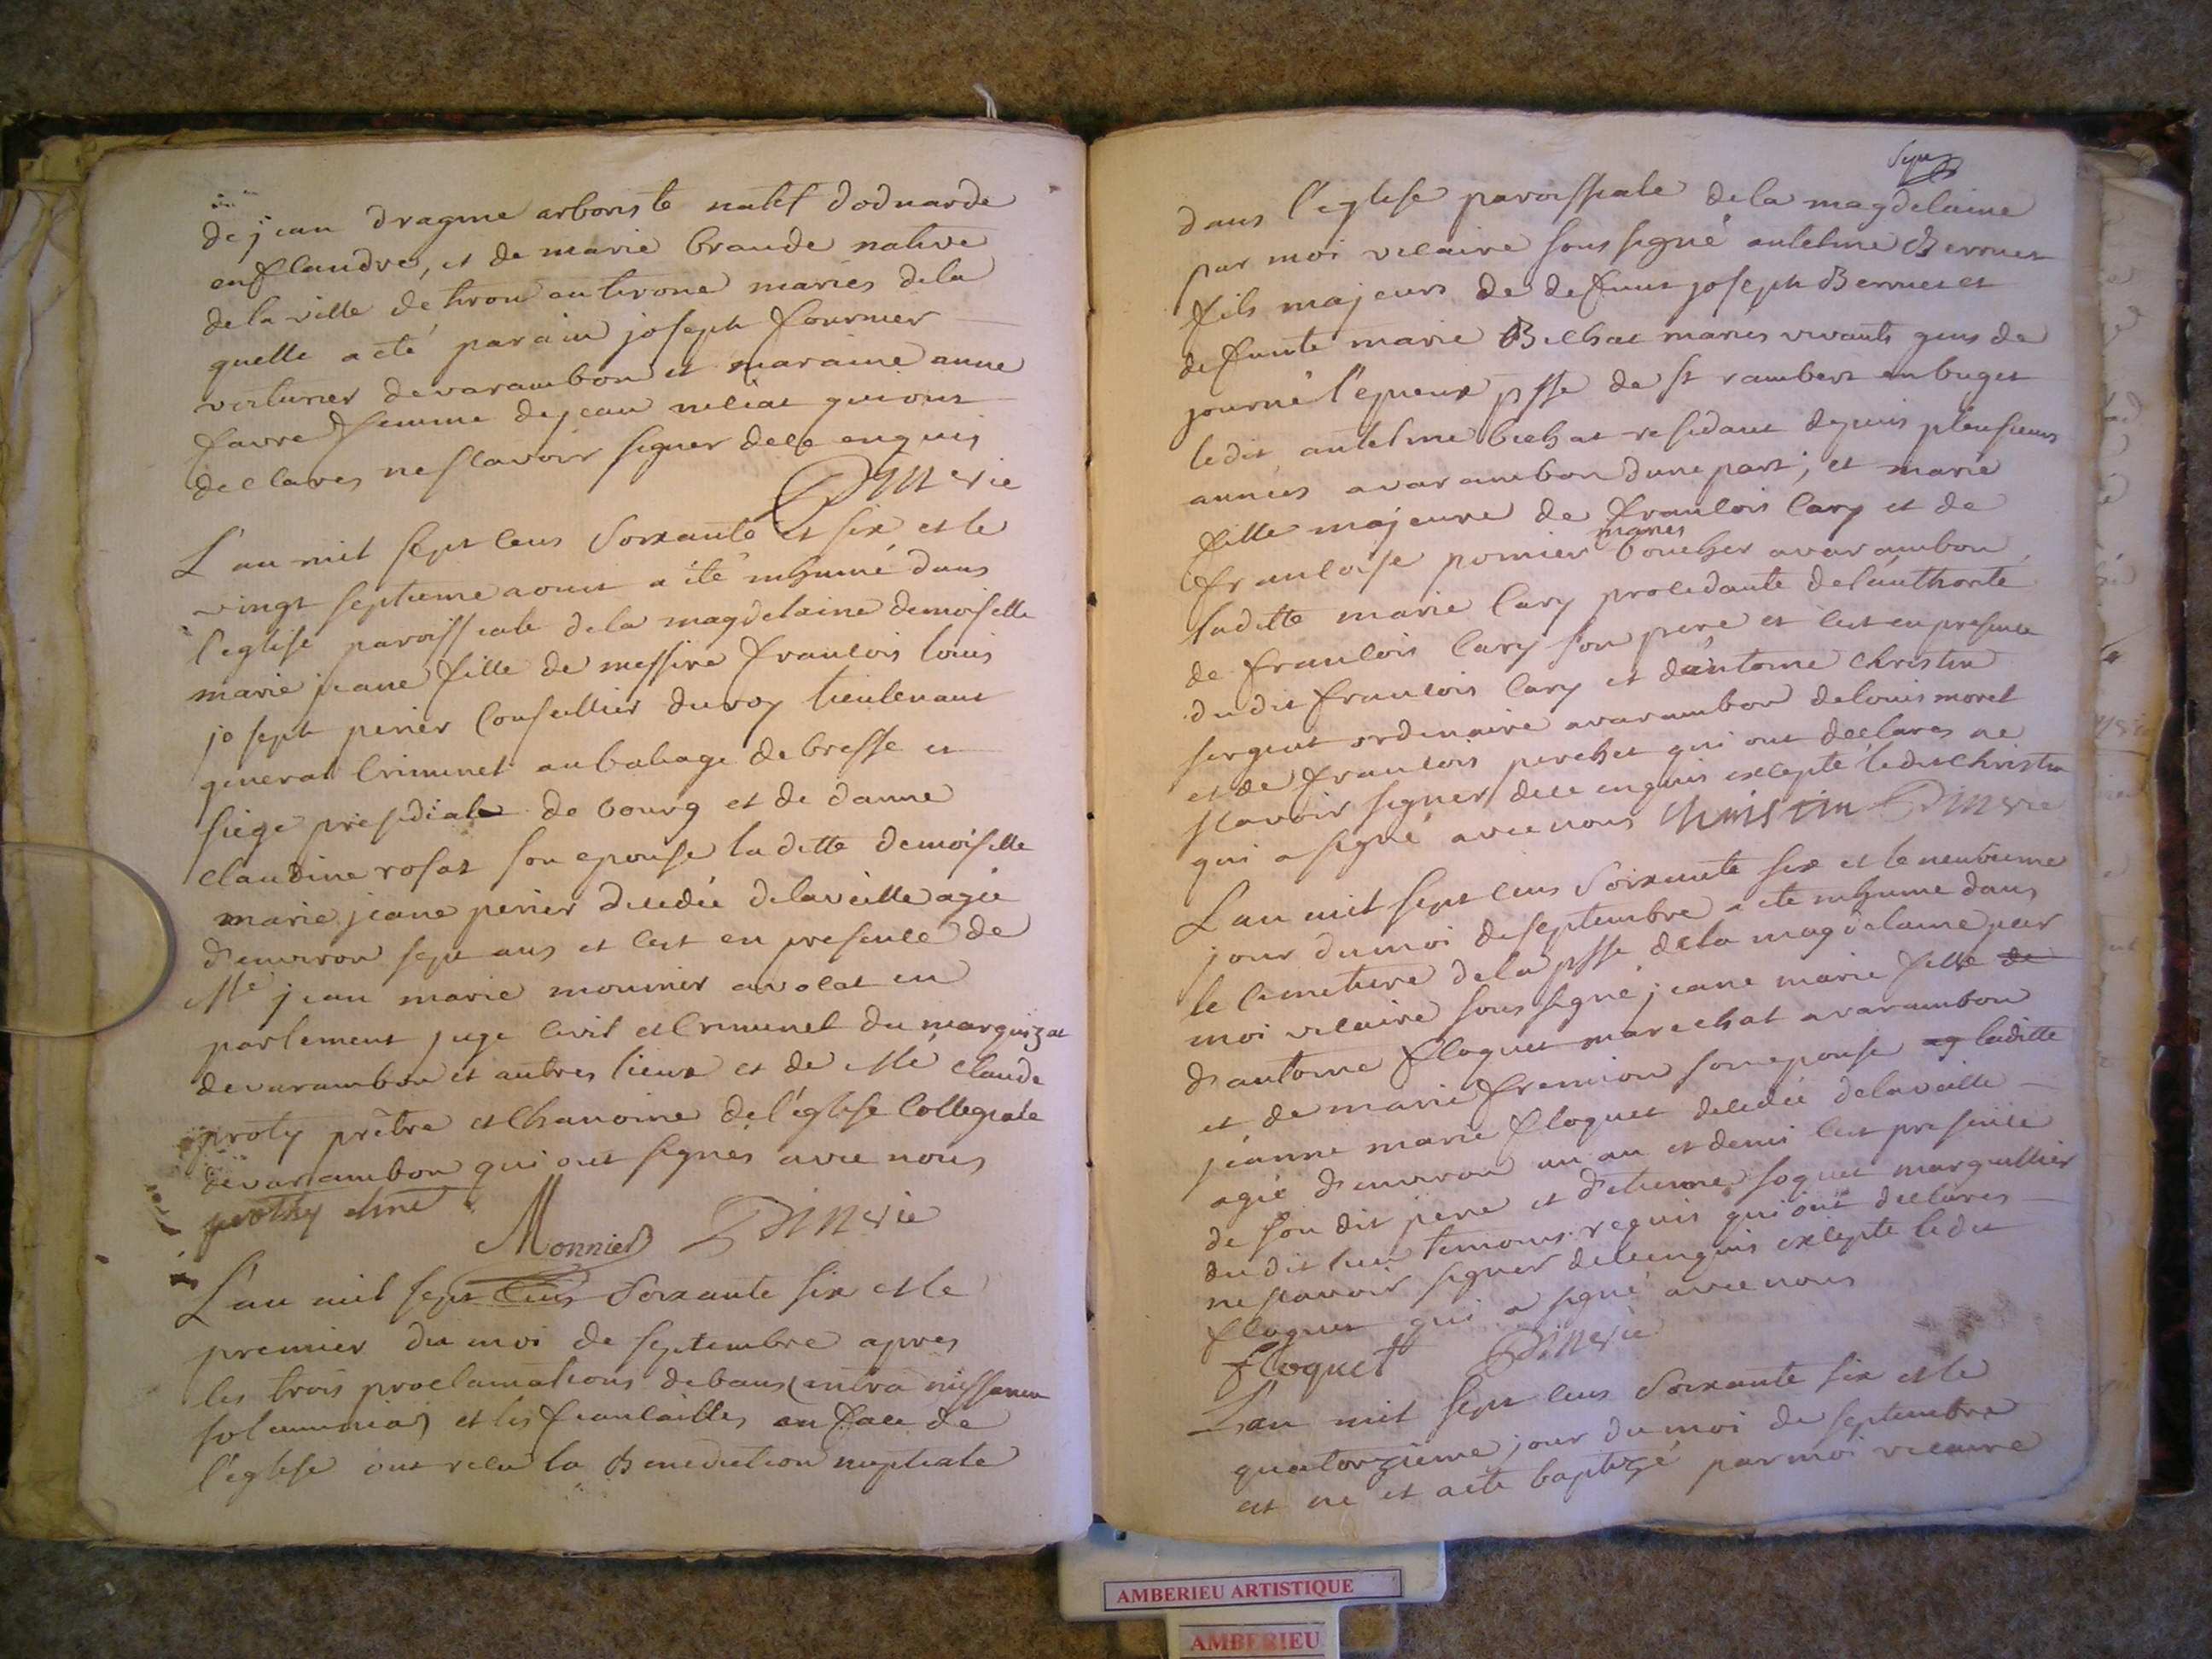 de jean dragme arboriste natif doduarde
en flandre, et de marie braude native
de la ville de tirou en tirone mariés de la
quelle a été parain joseph fournier
voiturier devarambon et maraine anne
favre femme de jean miliat qui ont
declares ne sçavoir signer de ce enquis
Dinvrie
L'an mil sept cens soixante et six et le
vingt septieme aoust a été inhumé dans
l'eglise paroissiale de la magdelaine demoiselle
marie jeane fille de messire françois louis
joseph perier conseillier du roy lieutenant
general criminel au baliage de bresse et
siege presidiale de bourg et de danne
claudine rosat son epouse la ditte demoiselle
marie jeane perier decedée de la veille agée
d'environ sept ans et cest en presence de
Me jean marie mounier avocat en
parlement juge civil et criminel du marquizat
devarambon et autres lieux et de Me claude
proty prêtre et chanoine de l'église collegiale
devarambon qui ont signés avec nous
prothy chne
Monnier Dinvrie
L'an mil sept cens soixante six et le
premier du moi de septembre apres
les trois proclamations de bans (intra missarum
solemnia) et les fiançailles en face de
l'eglise ont recu la Benediction nuptiale
dans l'eglise paroissiale de la magdelaine
par moi vicaire sous signé antelme Berruet
fils majeurs de defunt joseph Berruet et
defunte marie Bechat maries vivants gens de
journé l'epieux psse de st rambert en buget
ledit antelme bechat residant depuis plusieurs
années avarambon d'une part; et marie
fille majeure de françois cary et de
françoise pomier maries boucher avarambon
laditte marie cary procedante de l'authorité
de françois cary son pere et cest en presence
dudit françois cary et d'antoine christin
sergent ordinaire avarambon de louis morel
et de françois perchet qui ont declares ne
scavoir signer de ce enquis excepté ledit christin
qui a signé avec nous Christin Dinvrie
L'an mil sept cens soixante six et le neuvieme
jour du moi de septembre a été inhumé dans
le cimetiere de la psse de la magdelaine par
moi vicaire sous signé jeane marie fille de
d'antoine floquet marechal avarambon
et de marie fremion son epouse ag laditte
jeanne marie floquet decedée de la veille
agée d'environ un an et demi cest presence
de son dit pere et d'etienne soquet marguillier
du dit lieu temoins requis qui ont declares
ne scavoir signer de ce enquis excepté ledit
floquet qui a signé avec nous
floquet Dinvrie
L'an mil sept cens soixante six et le
quatorzieme jour du moi de septembre
est né et a été baptizé par moi vicaire
AMBERIEU ARTISTIQUE
AMBERIEU